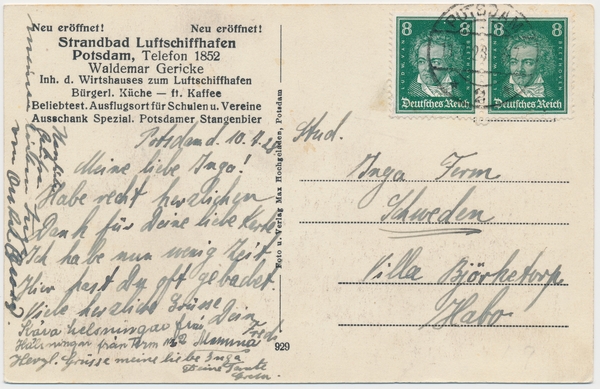 Neu eröffnet! Neu eröffnet!
Strandbad Luftschiffhafen
Potsdam, Telefon 1852
Waldemar Gericke
Inh. d. Wirtshauses zum Luftschiffhafen
Bürgerl. Küche — ff. Kaffee
Beliebtest. Ausflugsort für Schulen u. Vereine
Ausschank Spezial. Potsdamer Stangenbier
Potsdam d. 10.4.
Meine liebe Inga!
Habe recht herzlichen
Dank für Deine liebe Karte
Ich habe nun wenig Zeit.
Hier hast Du oft gebadet.
Viele herzliche Grüsse
Dein
Fredi
hälsningar från
Mamma
Hälsningar från
Herzl. Grüsse meine liebe Inga
Deine Tante
Foto u. Verlag Max Hochgeladen, Potsdam
929
8 8
LUDWIG VAN BEETHOVEN
Deutsches Reich
8 8
LUDWIG VAN BEETHOVEN
Deutsches Reich
POTSDAM
Stud.
Inga Ferm
Schweden
Villa Björketorp
Habo